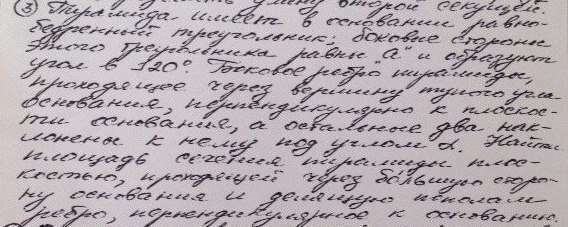 длину второй секущей.
③ Пирамида имеет в основании равно-
бедренный треугольник; боковые стороны
этого треугольника равны "а" и образуют
угол в 120°. Боковое ребро пирамиды,
проходящее через вершину тупого угла
основания, перпендикулярно к плоскос-
ти основания, а остальные два нак-
лонены к нему под углом α. Найти
площадь сечения пирамиды плос-
костью, проходящей через бо́льшую сторо-
ну основания и делящую пополам
ребро, перпендикулярное к основанию.